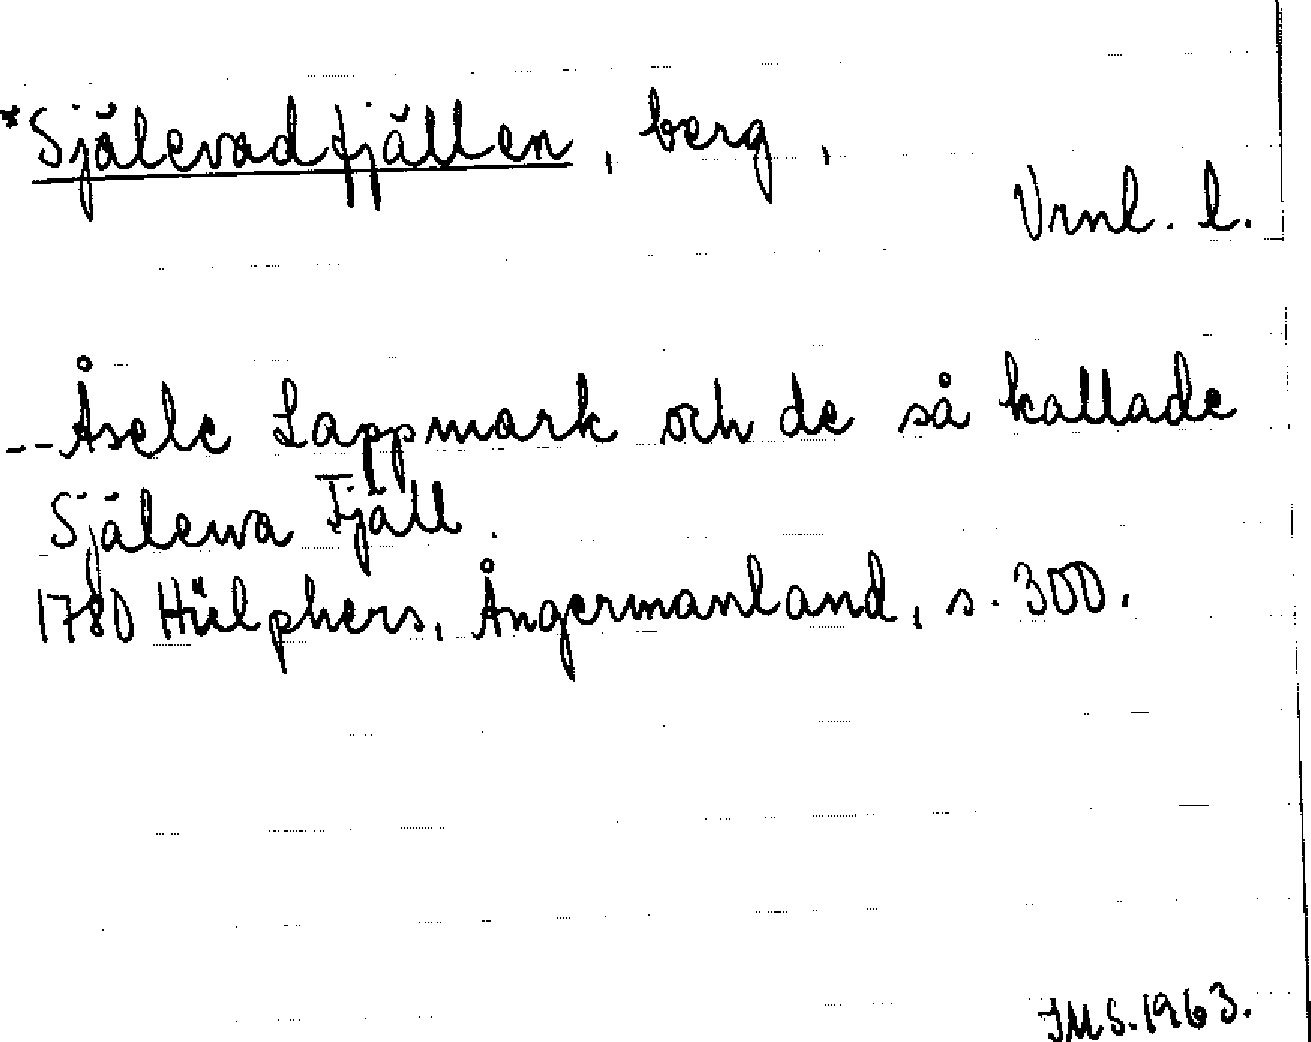 *Själevadfjällen, berg,
Vrml. l.
--Åsele Lappmark och de så kallade
Själewa Fjäll.
1780 Hülphers, Ångermanland, s. 300.
IMS. 1963.